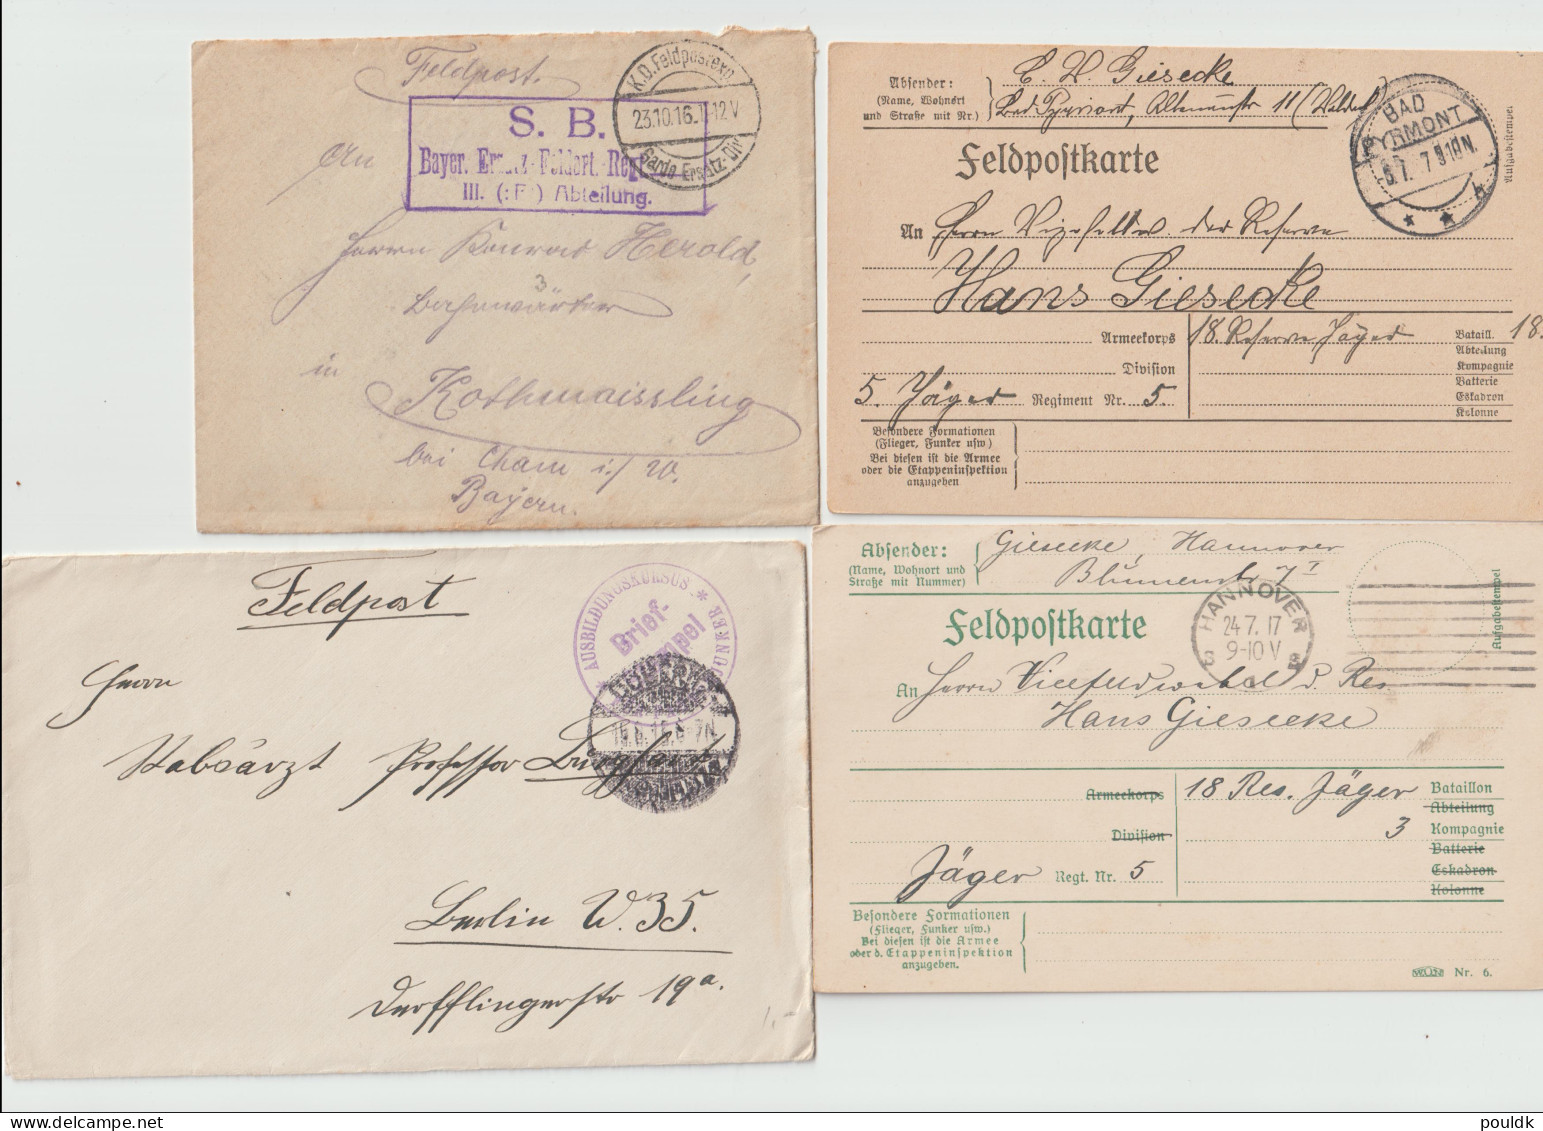 Feldpost.
K.D. Feldpostexp.
23.10.16. 11-12 V
Garde-Ersatz-Div
S. B.
Bayer. Ersatz-Feldart.-Reg
III. (:F ) Abteilung.
An
Herrn Konrad Herold,
3
in
Kothmaissling
bei Cham i/W.
Bayern.
Absender:
(Name, Wohnort
und Straße mit Nr.)
E. W. Giesecke
Bad Pyrmont, 11 (Waldeck)
BAD
PYRMONT
Aufgabestempel
Feldpostkarte
An Herrn Vizefeldw. der Reserve
Hans Giesecke
Armeekorps
18. Reserve Jäger
Bataill. 18.
Abteilung
Division
Kompagnie
Batterie
5. Jäger Regiment Nr. 5.
Eskadron
Kolonne
Besondere Formationen
(Flieger, Funker usw)
Bei diesen ist die Armee
oder die Etappeninspektion
anzugeben
Feldpost
AUSBILDUNGSKURSUS
Brief-
Herrn
Stabsarzt Professor
Berlin W. 35.
Derfflingerstr 19a.
1,-
Absender:
(Name, Wohnort und
Straße mit Nummer)
Giesecke, Hannover
Blumenstr. 7 I
HANNOVER
24.7.17
9-10 V
Aufgabestempel
Feldpostkarte
An Herrn Vicefeldwebel d. Res
Hans Giesecke
Armeekorps
18 Res. Jäger Bataillon
Abteilung
Division
3 Kompagnie
Batterie
Jäger Regt. Nr. 5
Eskadron
Kolonne
Besondere Formationen
(Flieger, Funker usw.)
Bei diesen ist die Armee
oder d. Etappeninspektion
anzugeben.
Nr. 6.
pouldk